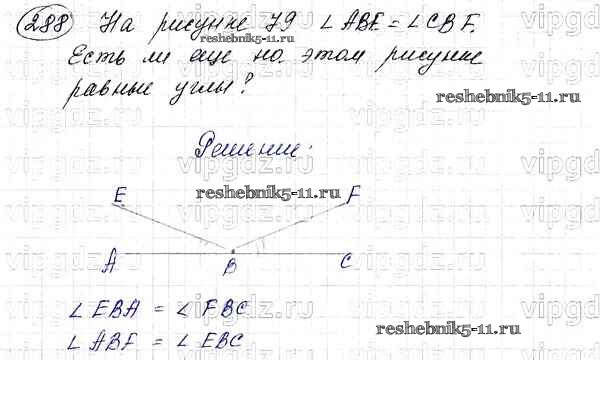 288 На рисунке 79 ∠ABE = ∠CBF.
reshebnik5-11.ru
Есть ли еще на этом рисунке
равные углы?
reshebnik5-11.ru
Решение:
reshebnik5-11.ru
E F
A B C
∠EBA = ∠FBC
∠ABF = ∠EBC
reshebnik5-11.ru
vipgdz.ru